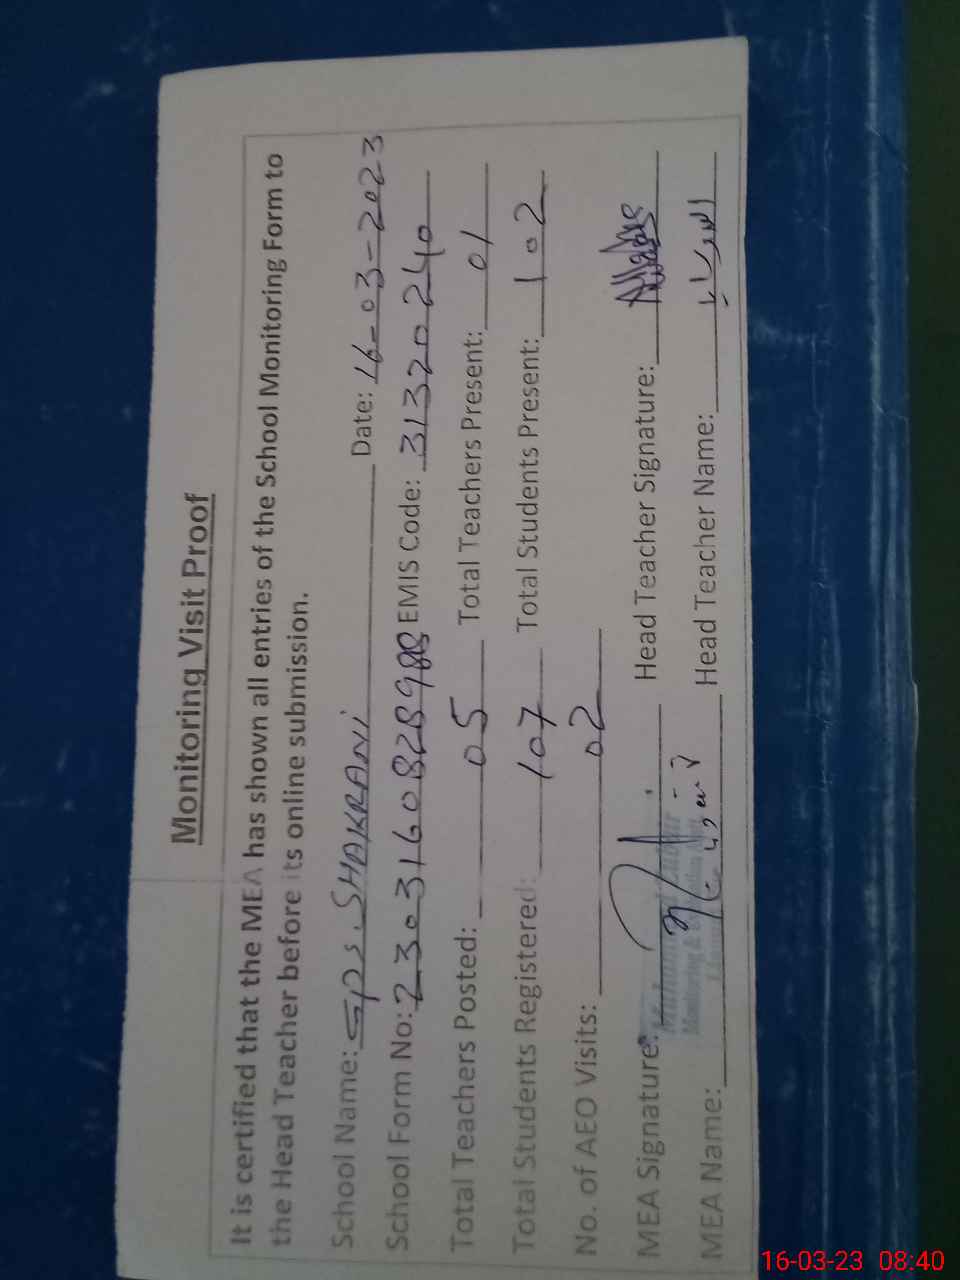 Monitoring Visit Proof
It is certified that the MEA has shown all entries of the School Monitoring Form to
the Head Teacher before its online submission.
School Name: GPS. SHAKRANI Date: 16-03-2023
School Form No: EMIS Code: 31320240
Total Teachers Posted: 05 Total Teachers Present: 01
Total Students Registered: 107 Total Students Present: 102
No. of AEO Visits: 02
MEA Signature: Head Teacher Signature:
Monitoring &
MEA Name: Head Teacher Name:
16-03-23 08:40